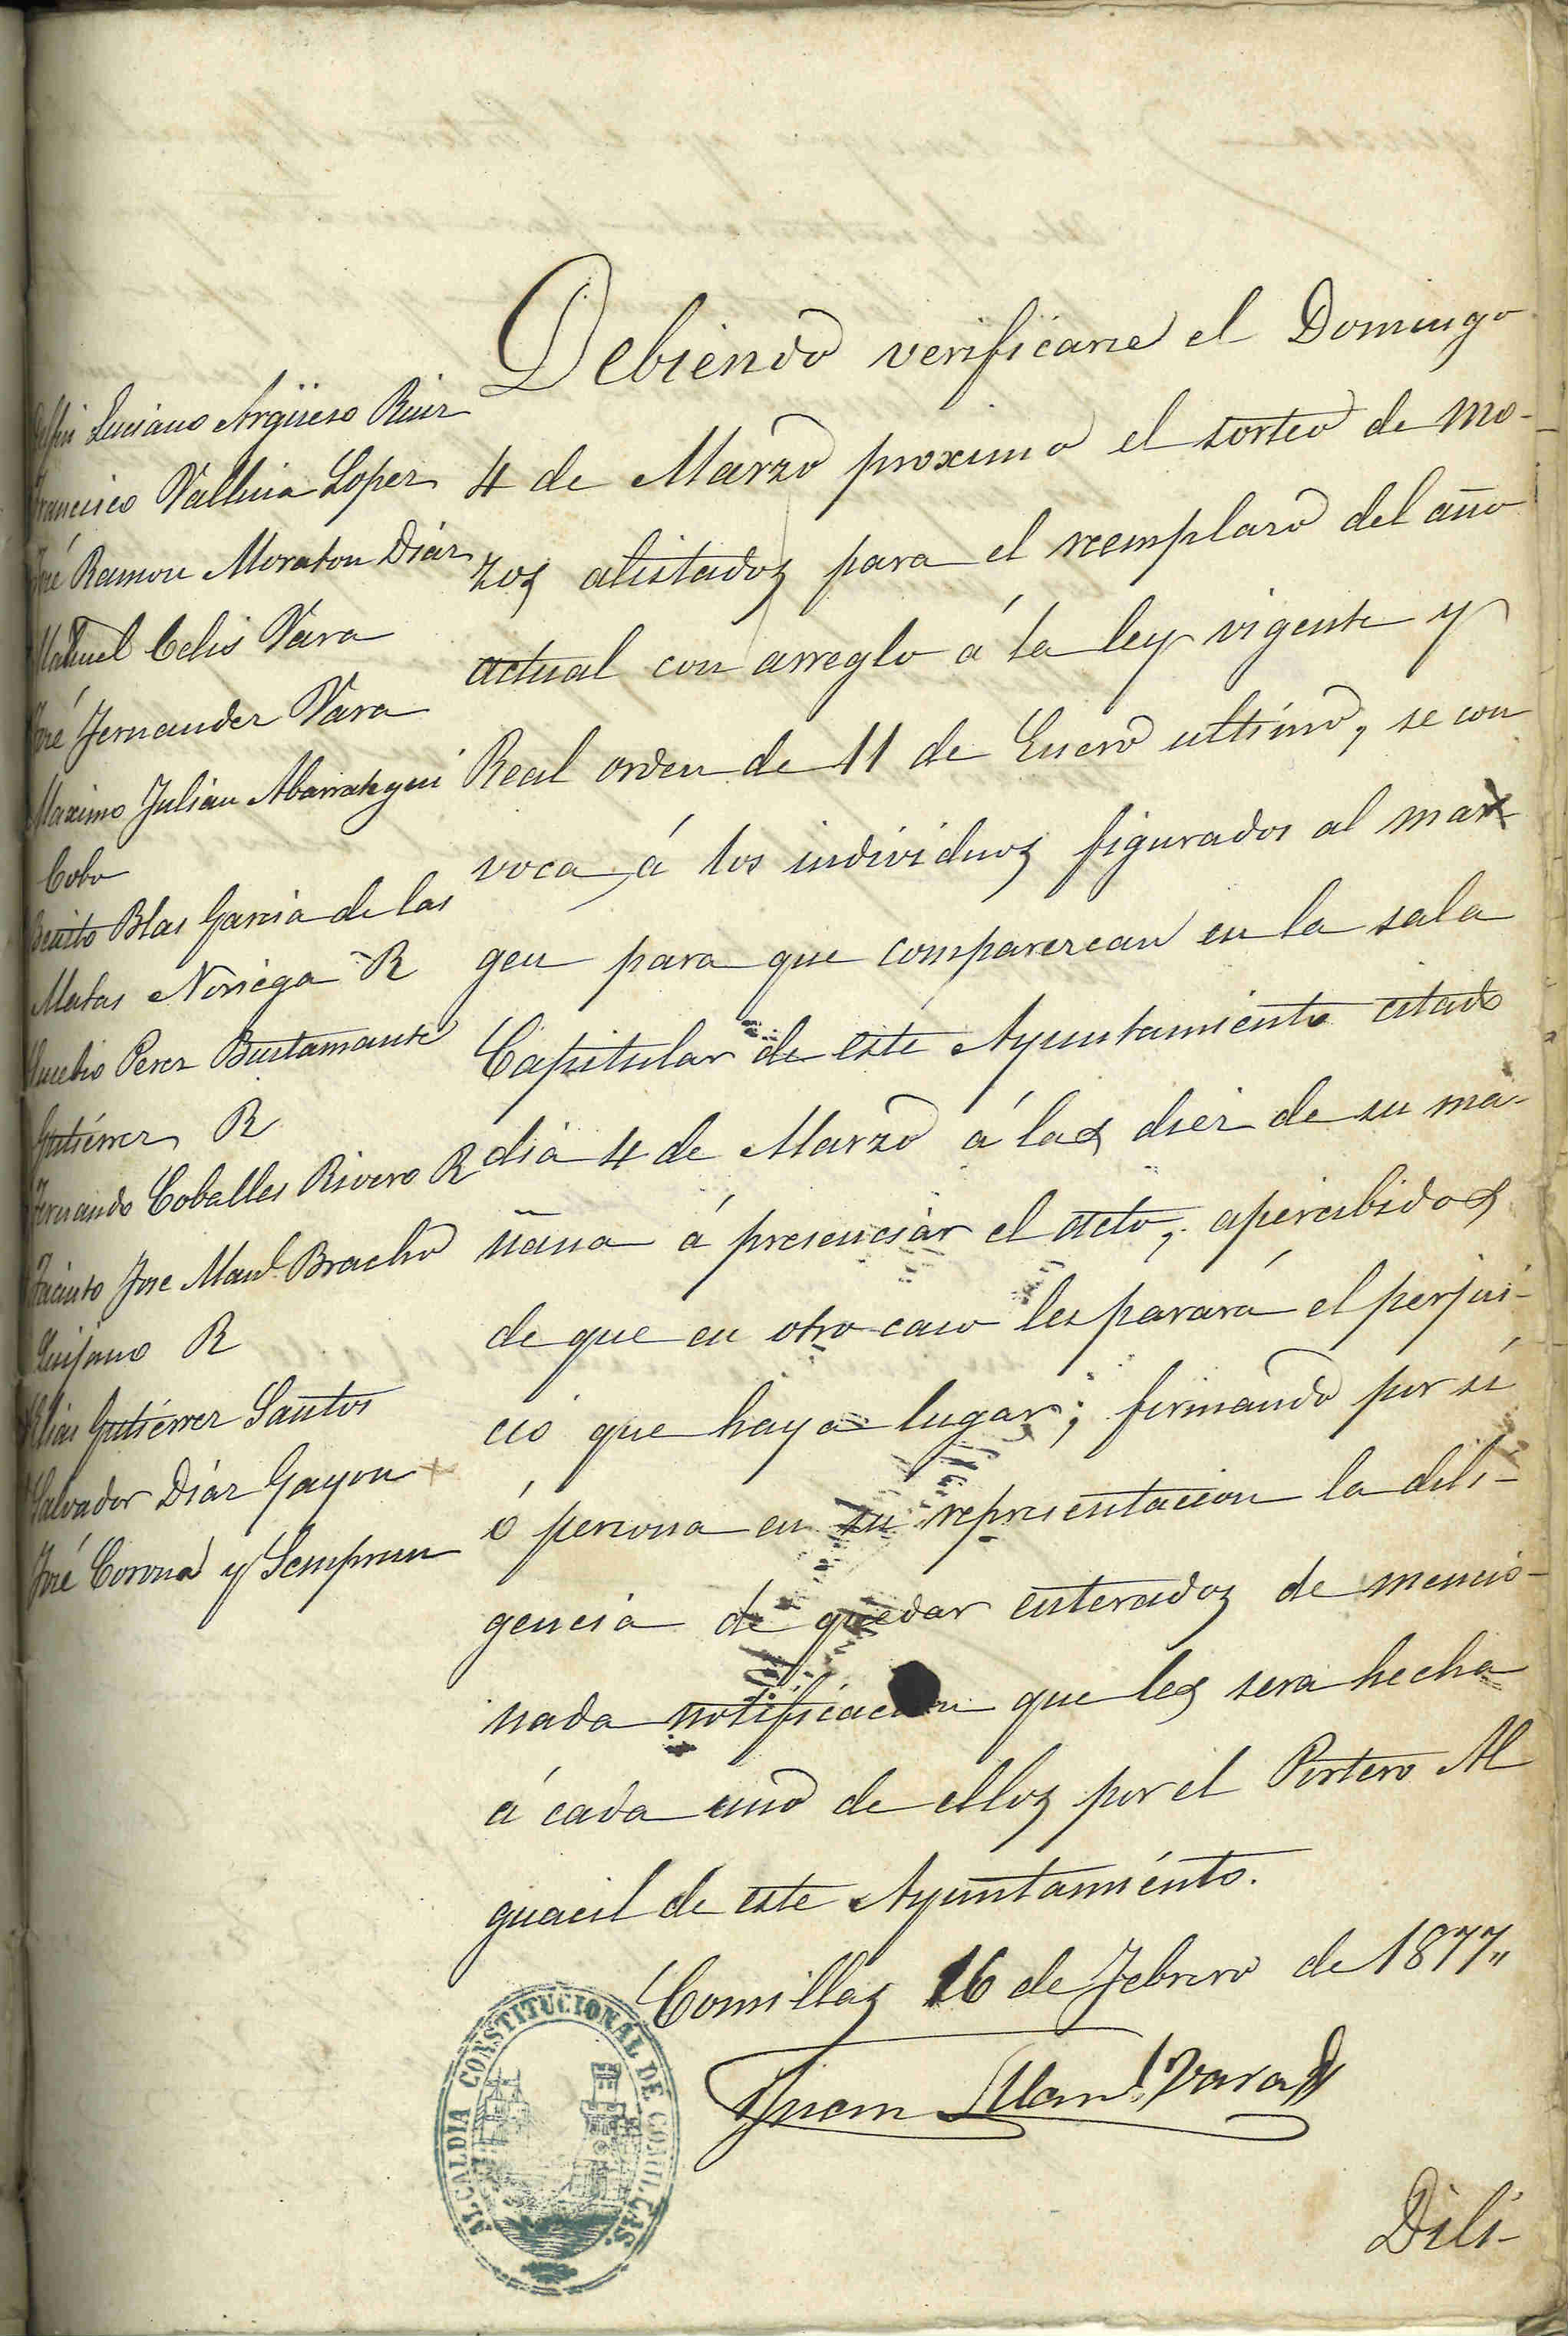 Debiendo verificarse el Domingo
4 de Marzo proximo el sorteo de mo-
zos alistados para el reemplazo del año
actual con arreglo á la ley vigente y
Real orden de 11 de Enero ultimo, se con
voca á los individuos figurados al mar
gen para que comparezcan en la sala
Capitular de este Ayuntamiento citado
dia 4 de Marzo á las diez de su ma-
ñana á presenciar el acto, apercibidos
de que en otro caso les parará el perjui-
cio que haya lugar; firmando por si
ó persona en su representacion la dili-
gencia de quedar enterados de mencio-
nada notificacion que les sera hecha
á cada uno de ellos por el Portero Al
guacil de este Ayuntamiento.
Comillas 16 de Febrero de 1877,,
Juan Manl. Vara
Dili-
Luciano Argüeso Ruiz
Francisco Vallina Lopez
José Ramon Moraton Diáz
Manuel Celis Vara
José Fernandez Vara
Maximo Julian Abarrategui
Cobo
Benito Blas Garcia de las
Matas Noriega R
Eusebio Perez Bustamante
Gutiérrez R
Fernando Coballes Rivero R
Jacinto Jose Manl. Bracho
Quijano R
Elias Gutiérrez Santos
Salvador Diáz Gayon
José Corona y Semprun
ALCALDIA CONSTITUCIONAL DE COMILLAS.